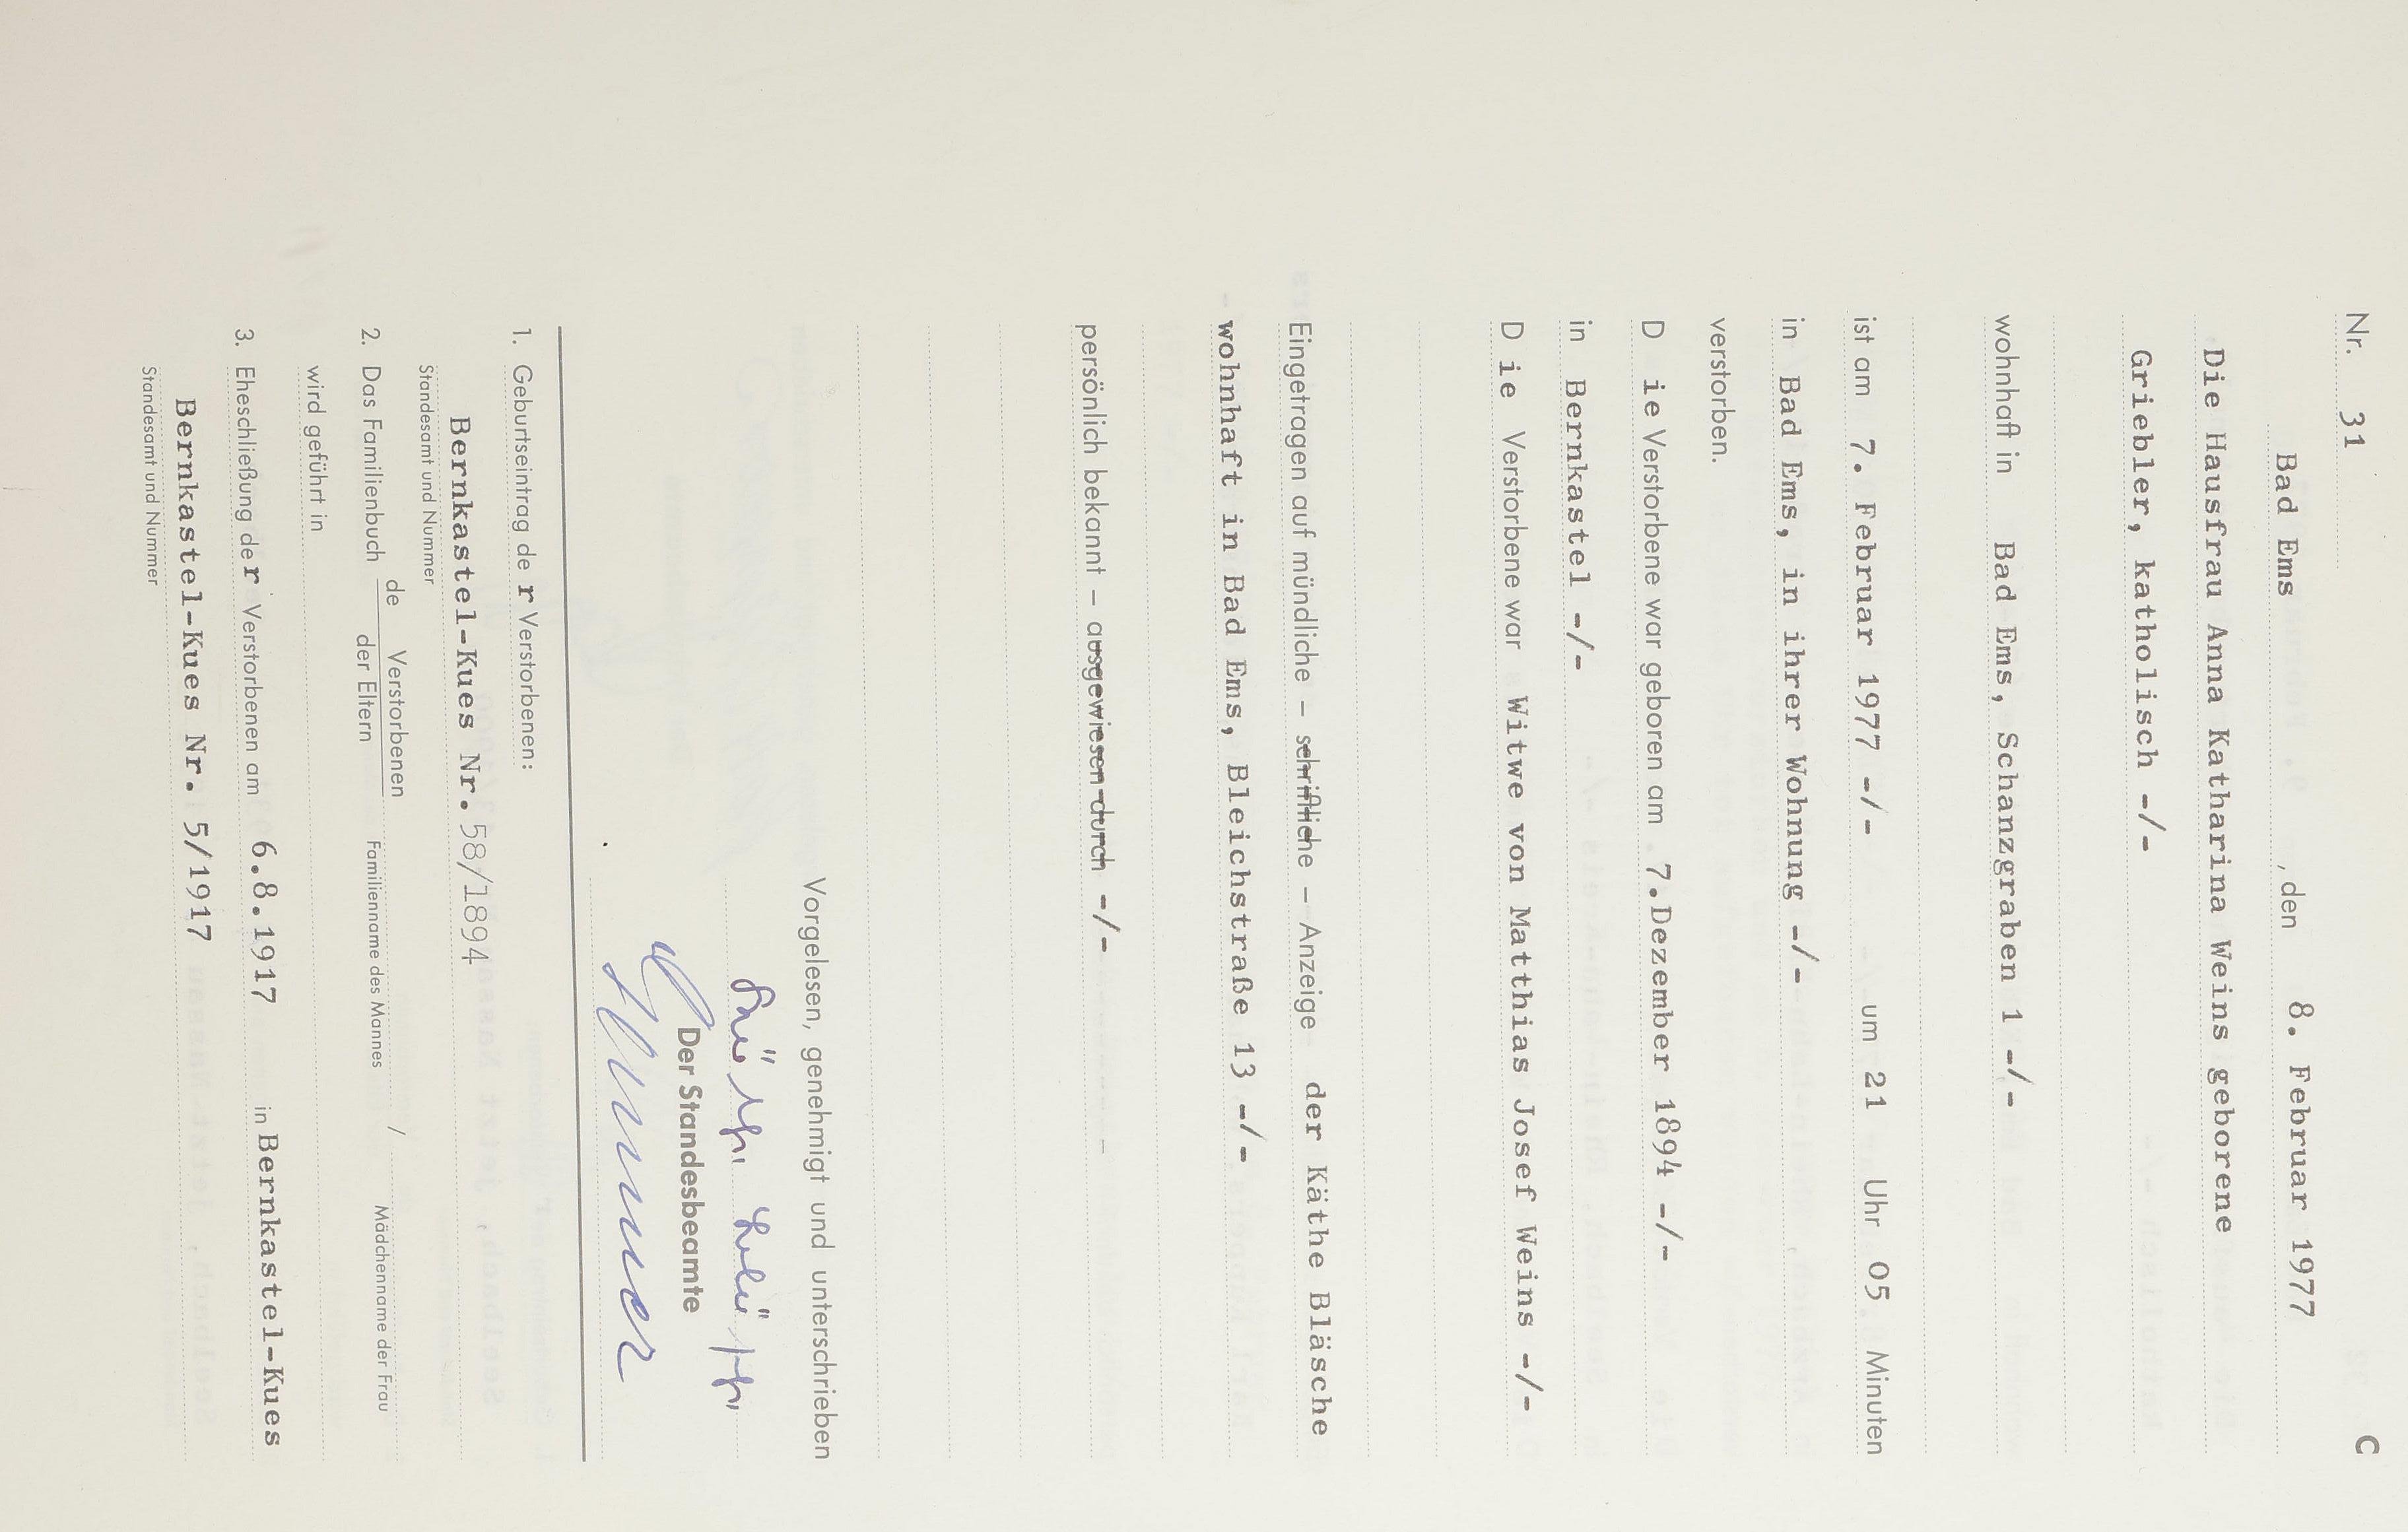 Nr. 31
C
Bad Ems , den 8. Februar 1977
Die Hausfrau Anna Katharina Weins geborene
Griebler, katholisch -/-
wohnhaft in Bad Ems, Schanzgraben 1 -/-
ist am 7. Februar 1977 -/- um 21 Uhr 05 Minuten
in Bad Ems, in ihrer Wohnung -/-
verstorben.
D ie Verstorbene war geboren am 7.Dezember 1894 -/-
in Bernkastel -/-
D ie Verstorbene war Witwe von Matthias Josef Weins -/-
Eingetragen auf mündliche – schriftliche – Anzeige der Käthe Bläsche
wohnhaft in Bad Ems, Bleichstraße 13 -/-
persönlich bekannt – ausgewiesen durch -/-
Vorgelesen, genehmigt und unterschrieben
Der Standesbeamte
1. Geburtseintrag de r Verstorbenen:
Bernkastel-Kues Nr. 58/1894
Standesamt und Nummer
2. Das Familienbuch de Verstorbenen
der Eltern
Familienname des Mannes / Mädchenname der Frau
wird geführt in
3. Eheschließung de r Verstorbenen am 6.8.1917 in Bernkastel-Kues
Bernkastel-Kues Nr. 5/1917
Standesamt und Nummer